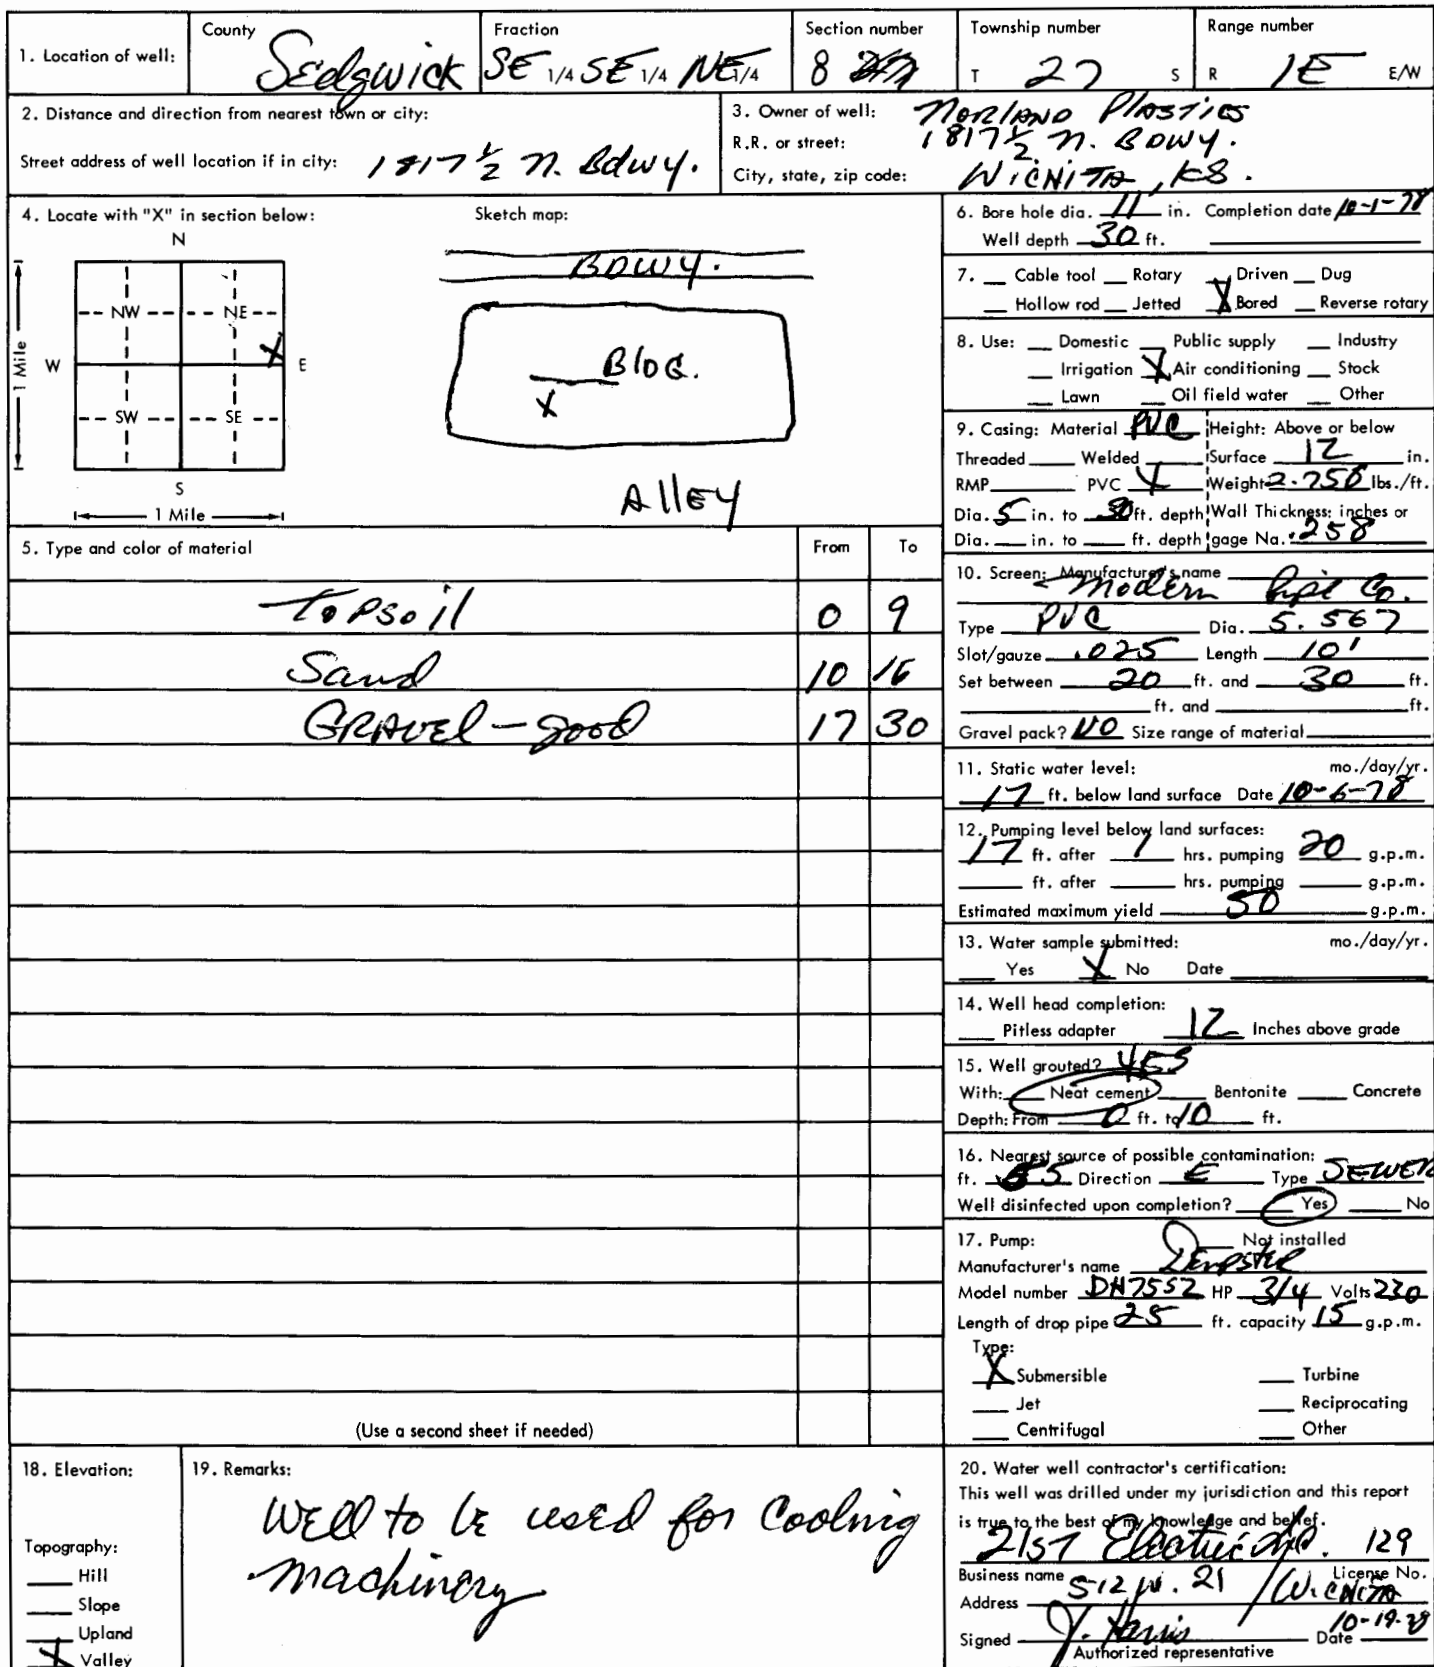 1. Location of well: County Sedgwick Fraction SE 1/4 SE 1/4 NE 1/4 Section number 8 Township number T 27 S Range number R 1E E/W
2. Distance and direction from nearest town or city:
Street address of well location if in city: 1817 ½ N. Bdwy.
3. Owner of well: Norland Plastics
R.R. or street: 1817 ½ N. BDWY.
City, state, zip code: Wichita, KS.
4. Locate with "X" in section below:
Sketch map:
N
NW NE
W X E
SW SE
S
1 Mile
1 Mile
BDWY.
Bldg.
X
Alley
5. Type and color of material From To
Topsoil 0 9
Sand 10 16
Gravel - good 17 30
(Use a second sheet if needed)
6. Bore hole dia. 11 in. Completion date 10-1-78
Well depth 30 ft.
7. Cable tool Rotary Driven Dug
Hollow rod Jetted X Bored Reverse rotary
8. Use: Domestic Public supply Industry
Irrigation X Air conditioning Stock
Lawn Oil field water Other
9. Casing: Material PVC Height: Above or below
Threaded Welded Surface 12 in.
RMP PVC X Weight 2.750 lbs./ft.
Dia. 5 in. to 30 ft. depth Wall Thickness: inches or
Dia. in. to ft. depth gage No. .258
10. Screen: Manufacturer's name
Modern Pipe Co.
Type PVC Dia. 5.567
Slot/gauze .025 Length 10'
Set between 20 ft. and 30 ft.
ft. and ft.
Gravel pack? NO Size range of material
11. Static water level: mo./day/yr.
17 ft. below land surface Date 10-6-78
12. Pumping level below land surfaces:
17 ft. after 1 hrs. pumping 20 g.p.m.
ft. after hrs. pumping g.p.m.
Estimated maximum yield 50 g.p.m.
13. Water sample submitted: mo./day/yr.
Yes X No Date
14. Well head completion:
Pitless adapter 12 Inches above grade
15. Well grouted? YES
With: Neat cement Bentonite Concrete
Depth: From 0 ft. to 10 ft.
16. Nearest source of possible contamination:
ft. 55 Direction E Type SEWER
Well disinfected upon completion? Yes No
17. Pump: Not installed
Manufacturer's name Dempster
Model number DH7552 HP 3/4 Volts 230
Length of drop pipe 25 ft. capacity 15 g.p.m.
Type:
X Submersible Turbine
Jet Reciprocating
Centrifugal Other
18. Elevation:
Topography:
Hill
Slope
Upland
X Valley
19. Remarks:
Well to be used for cooling
machinery
20. Water well contractor's certification:
This well was drilled under my jurisdiction and this report
is true to the best of my knowledge and belief.
21st Electric 129
Business name License No.
Address 512 W. 21 / Wichita
Signed J. Harris Date 10-19-78
Authorized representative